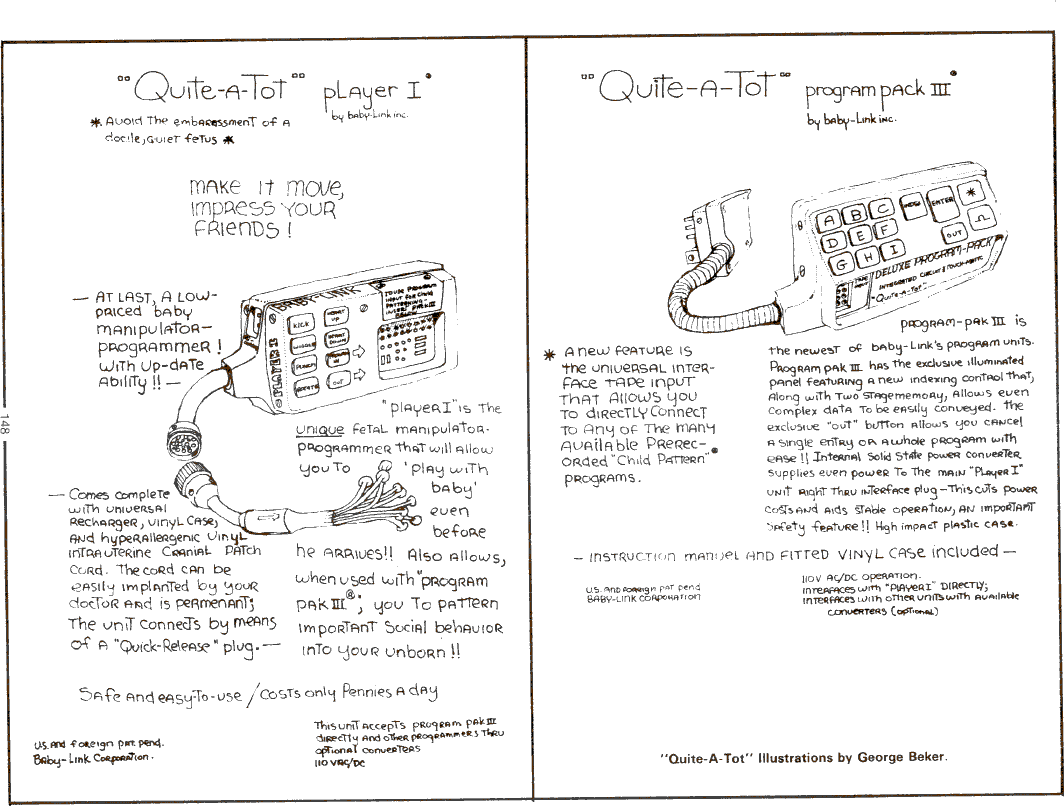 "Quite-A-Tot" player I
by baby-Link inc.
* Avoid The embaressmenT of A
docile, quieT feTus *
make it move,
impress your
friends !
— AT LAST, A LOW-
priced baby
manipulator-
programmer !
with up-date
Ability !! —
BABY-LINK
PLAYER II
KICK
WIGGLE
PUNCH
ROTATE
HEART
UP
HEART
DOWN
PROGRAM
IN
OUT
TO USE PROGRAM
INPUT FOR CHILD
PATTERNING -
INSERT PACK III
"player I" is The
unique feTAL manipulator-
programmer that will allow
you To 'play with
baby'
even
before
he ARRIVES!! Also Allows,
when used with "program
pak III"®, you To pATTern
imporTAnT Social behavior
inTo your unborn !!
— Comes complete
with universal
Recharger, vinyl CASE,
And hyperallergenic Vinyl
inTRAuTerine Cranial PATch
Cord. The cord can be
easily implanted by your
docTor and is permenanT;
The uniT connecTs by means
of A "Quick-Release" plug. —
Safe And eAsy-To-use / Costs only Pennies A dAy
U.S. And foreign pAT. pend.
BAby-Link Corporation.
This uniT AccepTs program pak III
direcTly And other programmers Thru
opTional converTers
110 VAC/DC
148
"Quite-A-ToT" program pAck III
by baby-Link inc.
A
B
C
D
E
F
G
H
I
INDEX
ENTER
*
OUT
Ω
TAPE
INPUT
DELUXE PROGRAM-PACK III
INTEGRATED CIRCUIT & TOUCH-MATIC
"Quite-A-Tot"
* A new feature is
the universal inter-
face TApe inpuT
ThAT Allows you
To direcTly ConnecT
To Any of The mAny
AvAilAble Prerec-
orded "Child PATTern"
progrAms.
program-pak III is
the newesT of baby-Link's program units.
Program pak III has the exclusive illuminated
panel featuring A new indexing control that,
Along with Two STAgememory, Allows even
Complex data To be easily conveyed. The
exclusive "out" button Allows you cancel
A single enTry or A whole program with
ease !! Internal Solid State power converter
supplies even power To The main "Player I"
unit right Thru inTerface plug-This cuTs power
cosTs And Aids STable operation, An importanT
safety feature!! High impact plastic case.
— insTruction manuel And fitted vinyl case included —
U.S. And foreign paT pend
BABY-Link corporation
110V AC/DC operation.
interfaces with "Player I" directly;
interfaces with other units with Available
converters (optional)
"Quite-A-Tot" Illustrations by George Beker.